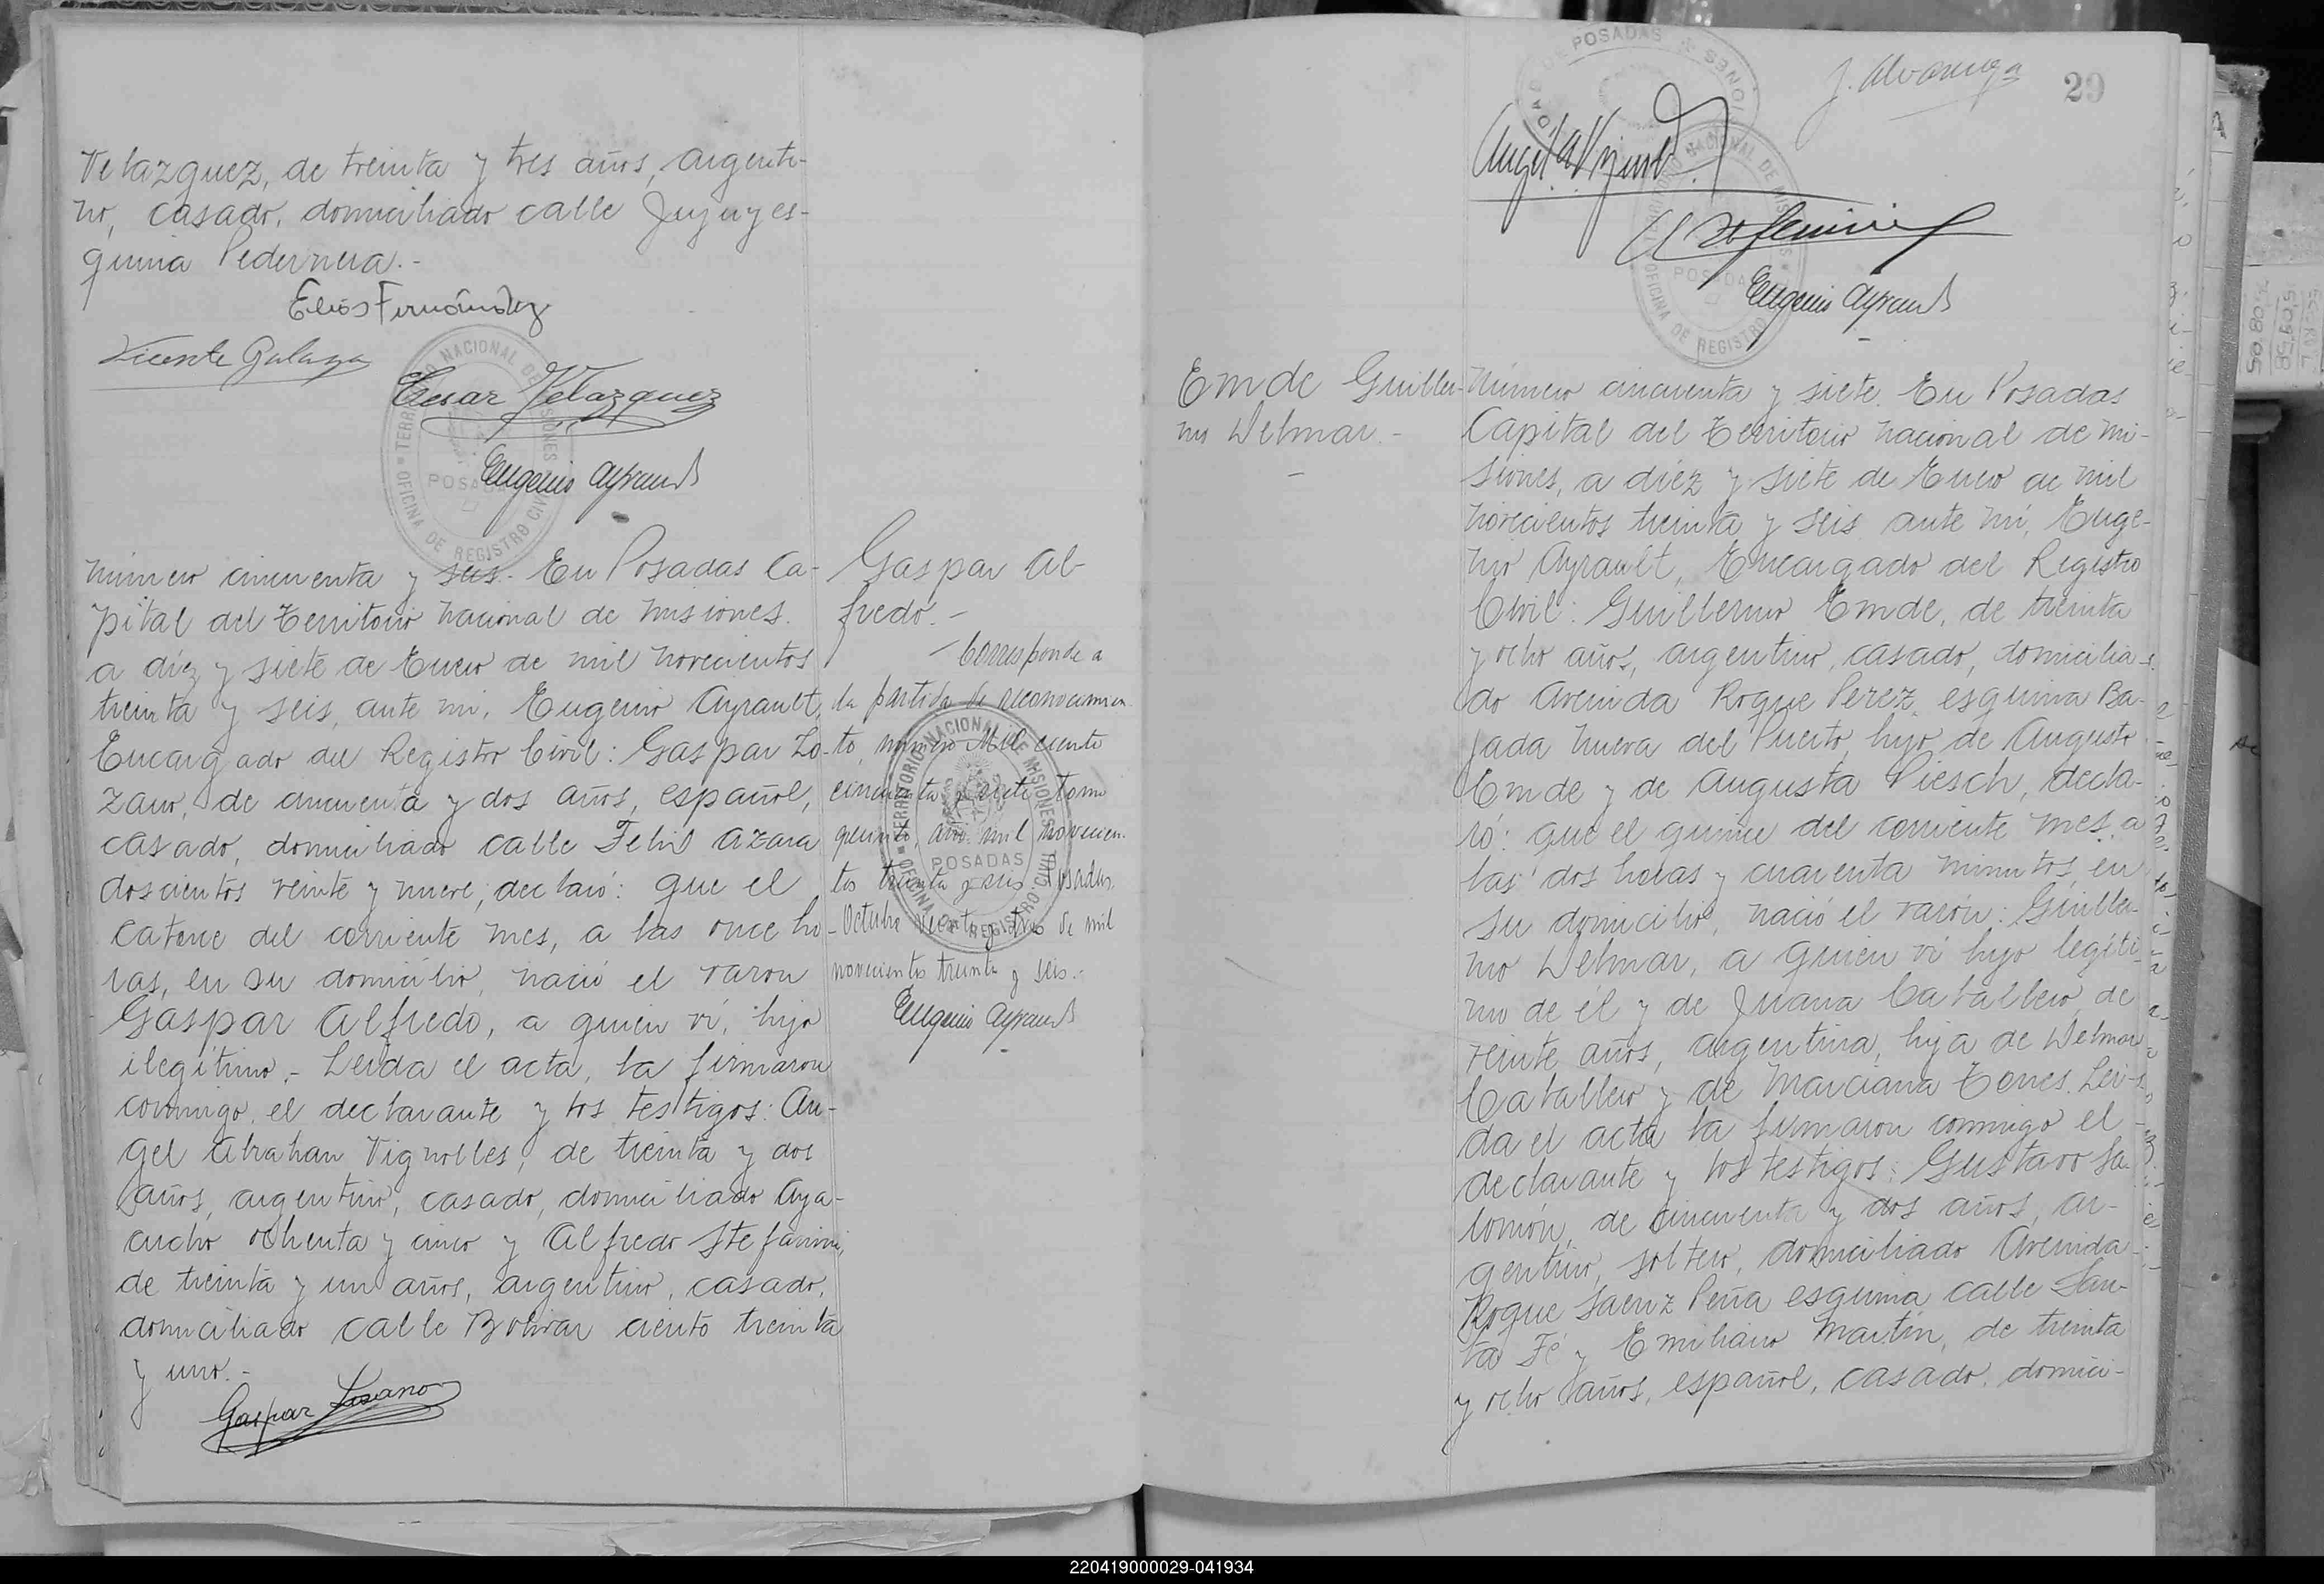 Velazquez, de treinta y tres años, argenti-
no, casado, domiciliado calle Jujuy es-
quina Pedernera.-
Elías Fernández
Vicente Galarza
Cesar Velazquez
Eugenio Ayrault
TERRITORIO NACIONAL DE MISIONES
POSADAS
OFICINA DE REGISTRO CIVIL
Número cincuenta y seis.- En Posadas Ca-
pital del Territorio Nacional de Misiones.
a diez y siete de Enero de mil novecientos
treinta y seis, ante mi, Eugenio Ayrault,
Encargado del Registro Civil: Gaspar Lo-
zano, de cincuenta y dos años, español,
casado, domiciliado calle Felix Azara
doscientos veinte y nueve, declaró: que el
catorce del corriente mes, a las once ho-
ras, en su domicilio, nació el varon
Gaspar Alfredo, a quien ví, hijo
ilegítimo.- Leída el acta, la firmaron
conmigo, el declarante y los testigos: An-
gel Abrahan Vignolles, de treinta y dos
años, argentino, casado, domiciliado Aya-
cucho ochenta y cinco y Alfredo Stefanini,
de treinta y un años, argentino, casado,
domiciliado calle Bolivar ciento treinta
y uno.-
Gaspar Losano
Gaspar Al-
fredo.-
-Corresponde a
la partida de reconocimien-
to, número Mil ciento
cincuenta y siete tomo
quinto, año mil novecien-
tos treinta y seis Posadas.
-Octubre veinte y tres de mil
novecientos treinta y seis.-
Eugenio Ayrault
TERRITORIO NACIONAL DE MISIONES
POSADAS
OFICINA DE REGISTRO CIVIL
29
TERRITORIO NACIONAL DE MISIONES
POSADAS
OFICINA DE REGISTRO
Eugenio Ayrault
Emde Guiller-
mo Delmar.-
Número cincuenta y siete. En Posadas
Capital del Territorio Nacional de Mi-
siones, a diez y siete de Enero de mil
novecientos treinta y seis ante mí, Euge-
nio Ayrault, Encargado del Registro
Civil: Guillermo Emde, de treinta
y ocho años, argentino, casado, domicilia-
do Avenida Roque Perez esquina Ba-
jada Nueva del Puerto, hijo de Augusto
Emde y de Augusta Piesch, decla-
ró: que el quince del corriente mes, a
las dos horas y cuarenta minutos, en
su domicilio, nació el varón: Guiller-
mo Delmar, a quien ví hijo legíti-
mo de él y de Juana Caballero, de
veinte años, argentina, hija de Delmar
Caballero y de Marciana Torres. Leí-
da el acta la firmaron conmigo el
declarante y los testigos: Gustavo Sa-
lomón, de cincuenta y dos años, ar-
gentino, soltero, domiciliado Avenida
Roque Saenz Peña esquina calle San-
ta Fé y Emiliano Martin, de treinta
y ocho años, español, casado, domici-
220419000029-041934